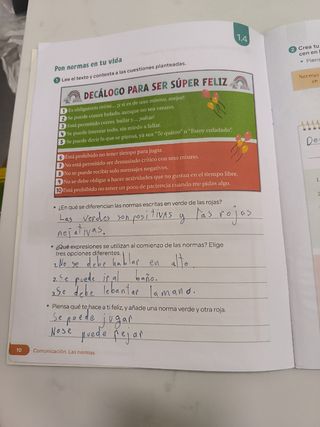 1.4
Pon normas en tu vida
1 Lee el texto y contesta a las cuestiones planteadas.
DECÁLOGO PARA SER SÚPER FELIZ
1 Es obligatorio reírse... ¡y si es de uno mismo, mejor!
2 Se puede comer helado, aunque no sea verano.
3 Está permitido correr, bailar y... ¡saltar!
4 Se puede intentar todo, sin miedo a fallar.
5 Se puede decir lo que se piensa, ya sea "Te quiero" o "Estoy enfadada".
6 Está prohibido no tener tiempo para jugar.
7 No está permitido ser demasiado crítico con uno mismo.
8 No se puede recibir solo mensajes negativos.
9 No se debe obligar a hacer actividades que no gustan en el tiempo libre.
10 Está prohibido no tener un poco de paciencia cuando me pidas algo.
• ¿En qué se diferencian las normas escritas en verde de las rojas?
Las verdes son positivas y las rojas
negativas.
• ¿Qué expresiones se utilizan al comienzo de las normas? Elige
tres opciones diferentes.
1 No se debe hablar en alto.
2 Se puede ir al baño.
3 Se debe lebantar la mano.
• Piensa qué te hace a ti feliz, y añade una norma verde y otra roja.
Se puede jugar
No se puede pejar
10 Comunicación. Las normas
2 Crea tu
cen en
• Piens
Normas